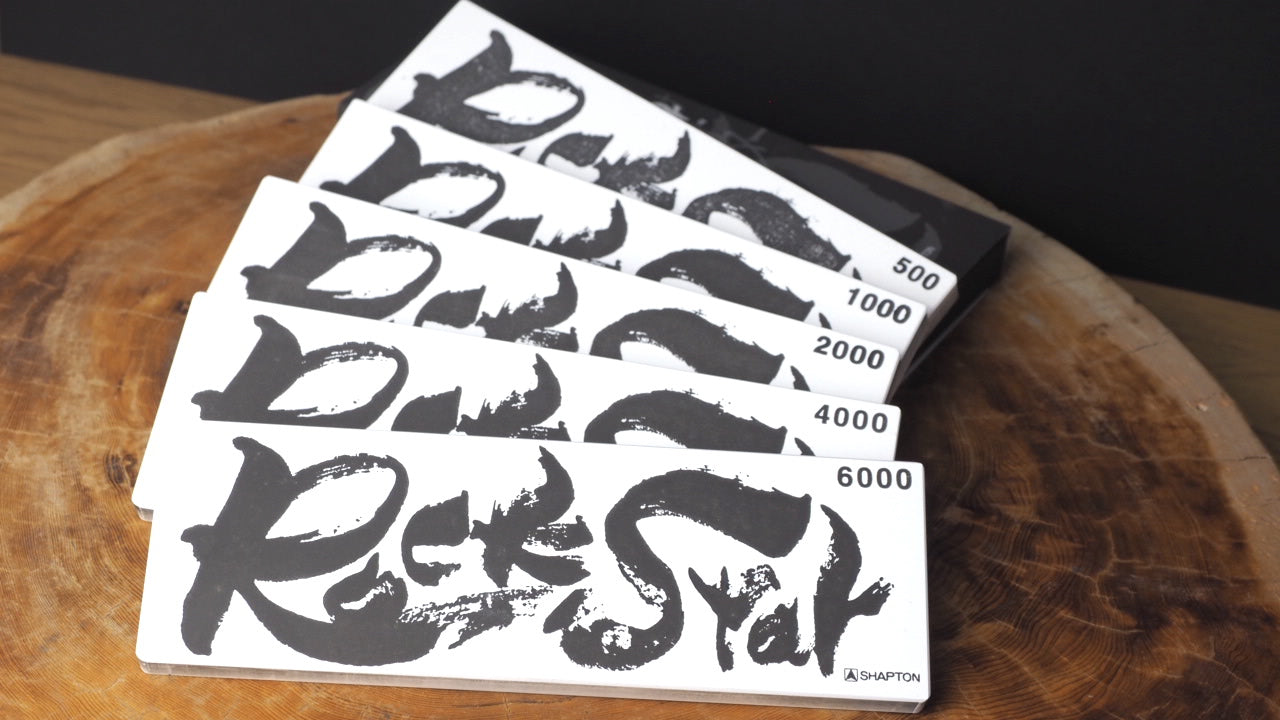 500
1000
2000
4000
6000
RockStar
SHAPTON